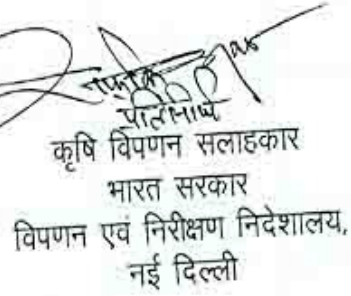 कृषि विपणन सलाहकार
भारत सरकार
विपणन एवं निरीक्षण निदेशालय,
नई दिल्ली